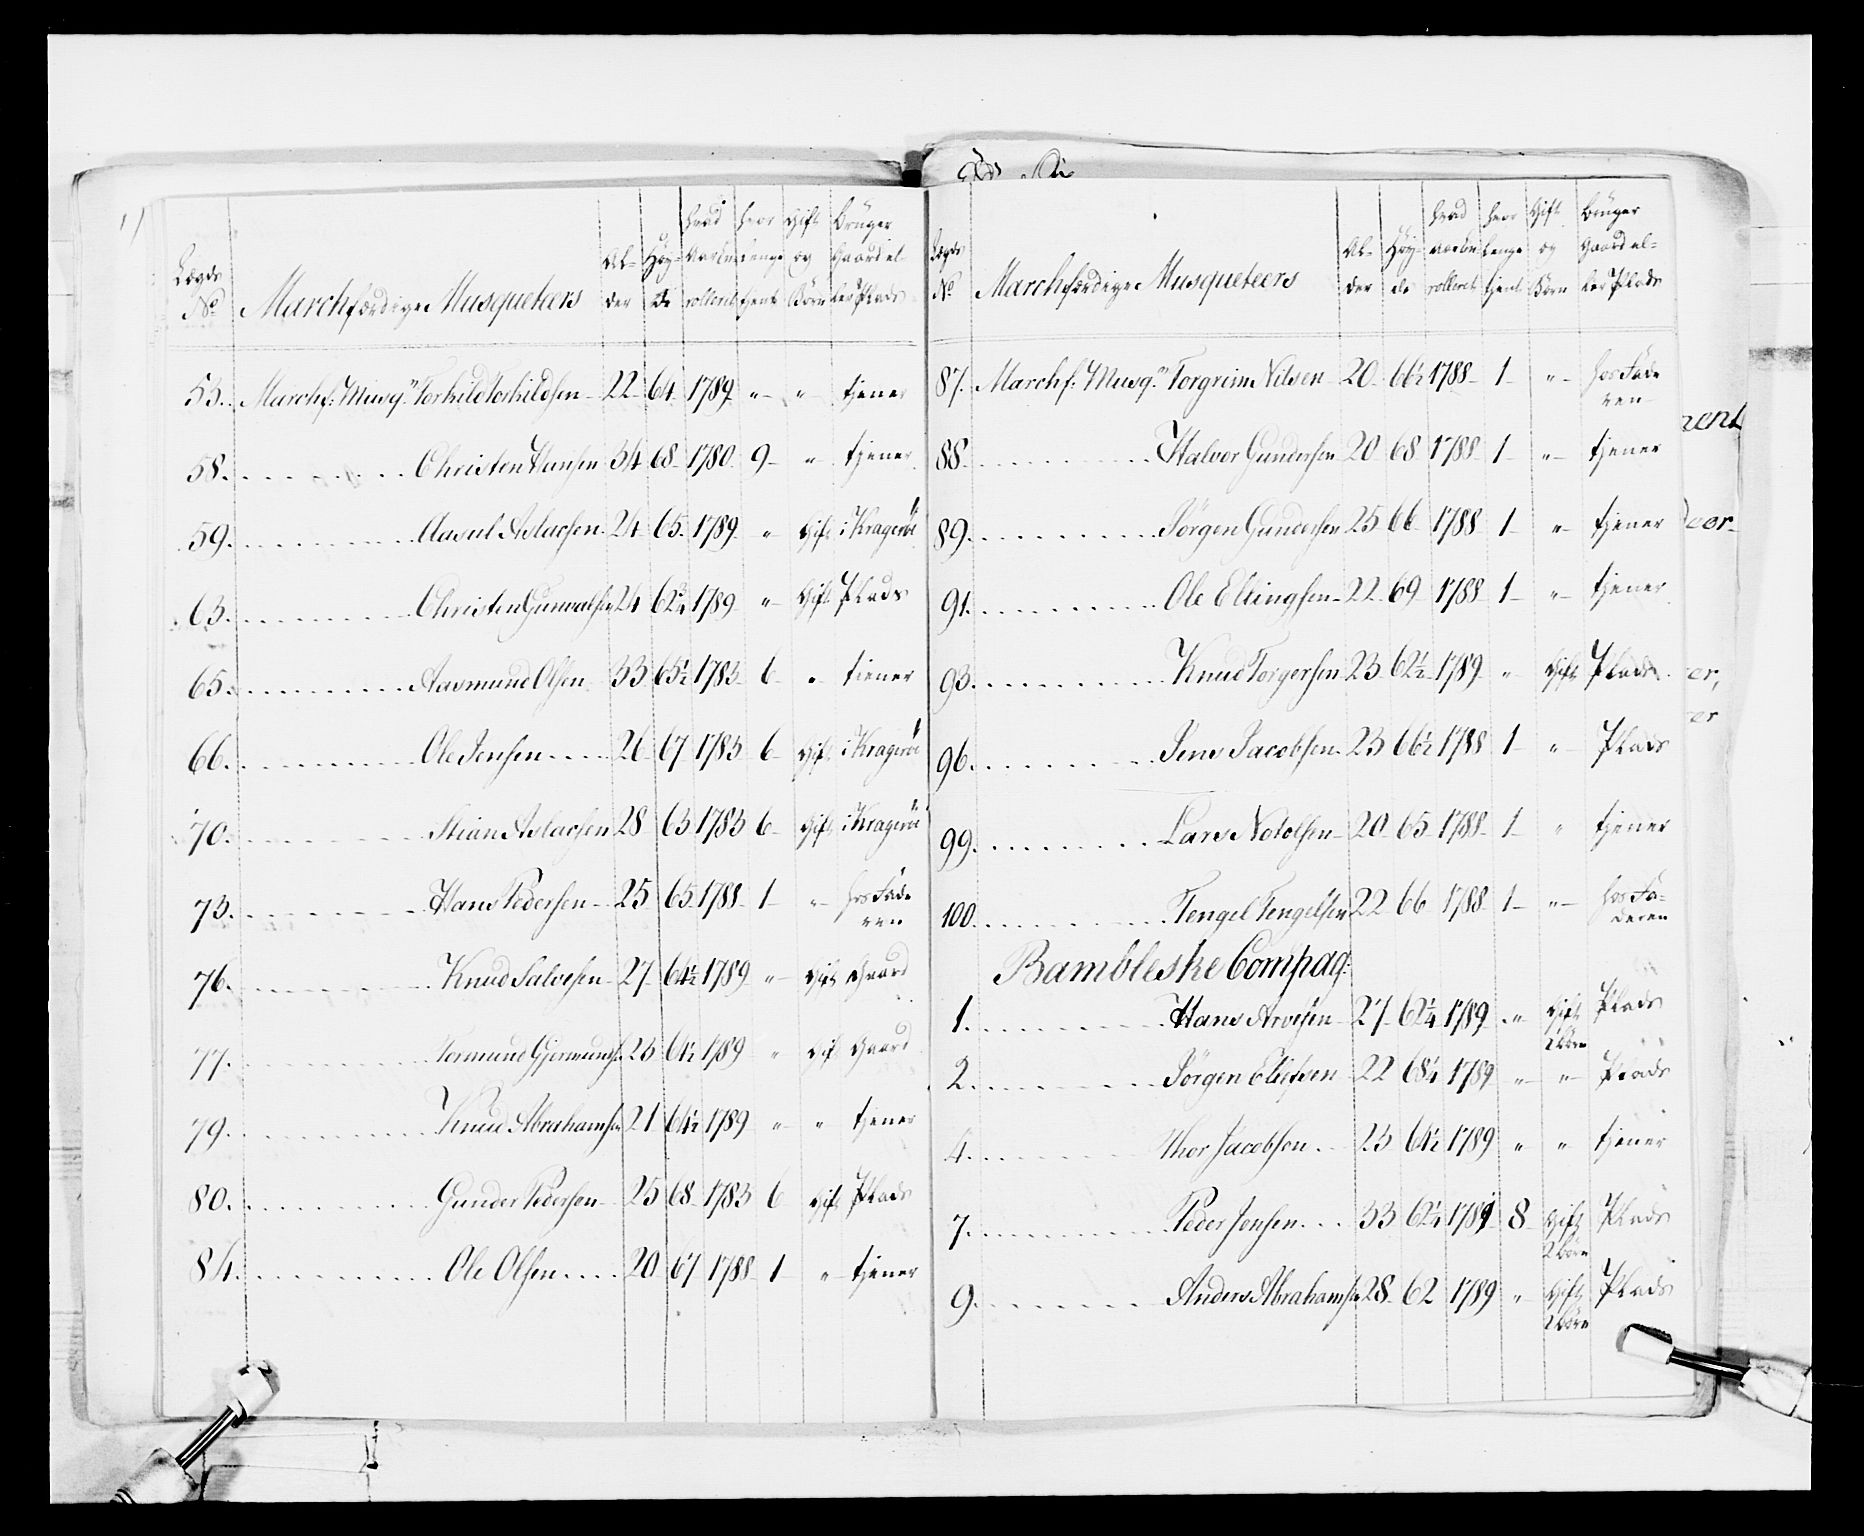 Lægds No Marchfærdige Musqueteers Al- der Høy- de hvad Aar Enrolleret hvor Lenge tient Gift og Børn Bruger Gaard el- ler Plads
53. Marchf: Musq: Torkild Torkildsen 22 64 1789 " " tjener
58. Christen Hansen 34 68 1780 9 " tjener
59. Aasul Aslachsen 24 65 1789 " Gift i Kragerøe
63. Christen Gunvalsen 24 62 3/4 1789 " Gift Plads
65. Aasmund Olsen 33 65 1/2 1783 6 " tiener
66. Ole Jensen 26 67 1783 6 Gift i Kragerøe
70. Stian Aslachsen 28 63 1783 6 Gift i Kragerøe
73. Hans Pedersen 25 65 1788 1 " hos Fade
ren
76. Knud Salvesen 27 64 1/2 1789 " Gift Gaard
77. Gjermundsen 23 64 1/2 1789 " Gift Gaard
79. Knud Abrahamsen 21 64 1/2 1789 " " tjener
80. Gunder Pedersen 25 68 1783 6 Gift Plads
84. Ole Olsen 20 67 1788 1 " tjener
Lægds No Marchfærdige Musqueteers Al- der Høy- de hvad Aar Enrolleret hvor Lenge tjent Gift og Børn Bruger Gaard el- ler Plads
87. Marchf: Musq: Torgrim Nilsen 20 66 1/2 1788 1 " hos Fade
ren
88. Halvor Gundersen 20 68 1788 1 " tjener
89. Jørgen Gundersen 25 66 1788 1 " tjener
91. Ole Ellingsen 22 69 1788 1 " tjener
93. Knud Torgersen 23 62 1/2 1789 " Gift Plads
96. Jens Jacobsen 23 66 1/2 1788 1 " Plads
99. Lars Nololsen 20 65 1788 1 " tjener
100. Tengel Tengelsen 22 66 1788 1 " hos Fa-
deren
Bambleske Compag:
1. Hans Arvesen 27 62 1/4 1789 " Gift Plads
2 børn
2. Jørgen Eliefsen 22 68 1/4 1789 " " Plads
4. Thor Jacobsen 23 64 1/2 1789 " " tjener
7. Peder Jensen 33 62 1/4 1781 8 Gift Plads
2 børn
9. Anders Abrahamsen 28 62 1789 " Gift Plads
2 børn